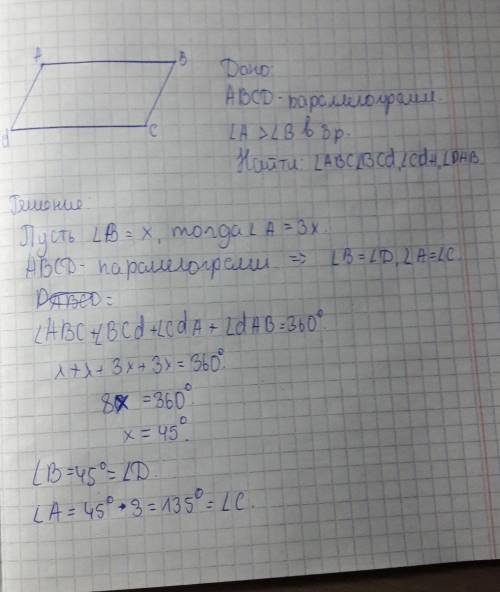 A B
d C
Дано:
ABCD - параллелограмм.
∠A > ∠B в 3 р.
Найти: ∠ABC, ∠BCd, ∠CdA, ∠DAB
Решение:
Пусть ∠B = x, тогда ∠A = 3x.
ABCD - параллелограмм => ∠B = ∠D, ∠A = ∠C.
∠ABC + ∠BCd + ∠CdA + ∠dAB = 360°
x + x + 3x + 3x = 360°
8x = 360°
x = 45°.
∠B = 45° = ∠D.
∠A = 45° * 3 = 135° = ∠C.